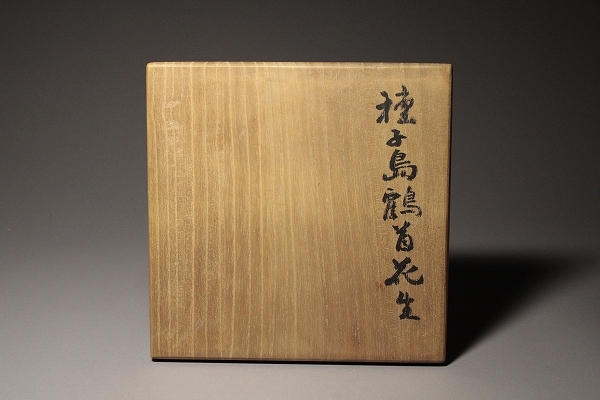 種子島鶴首花生